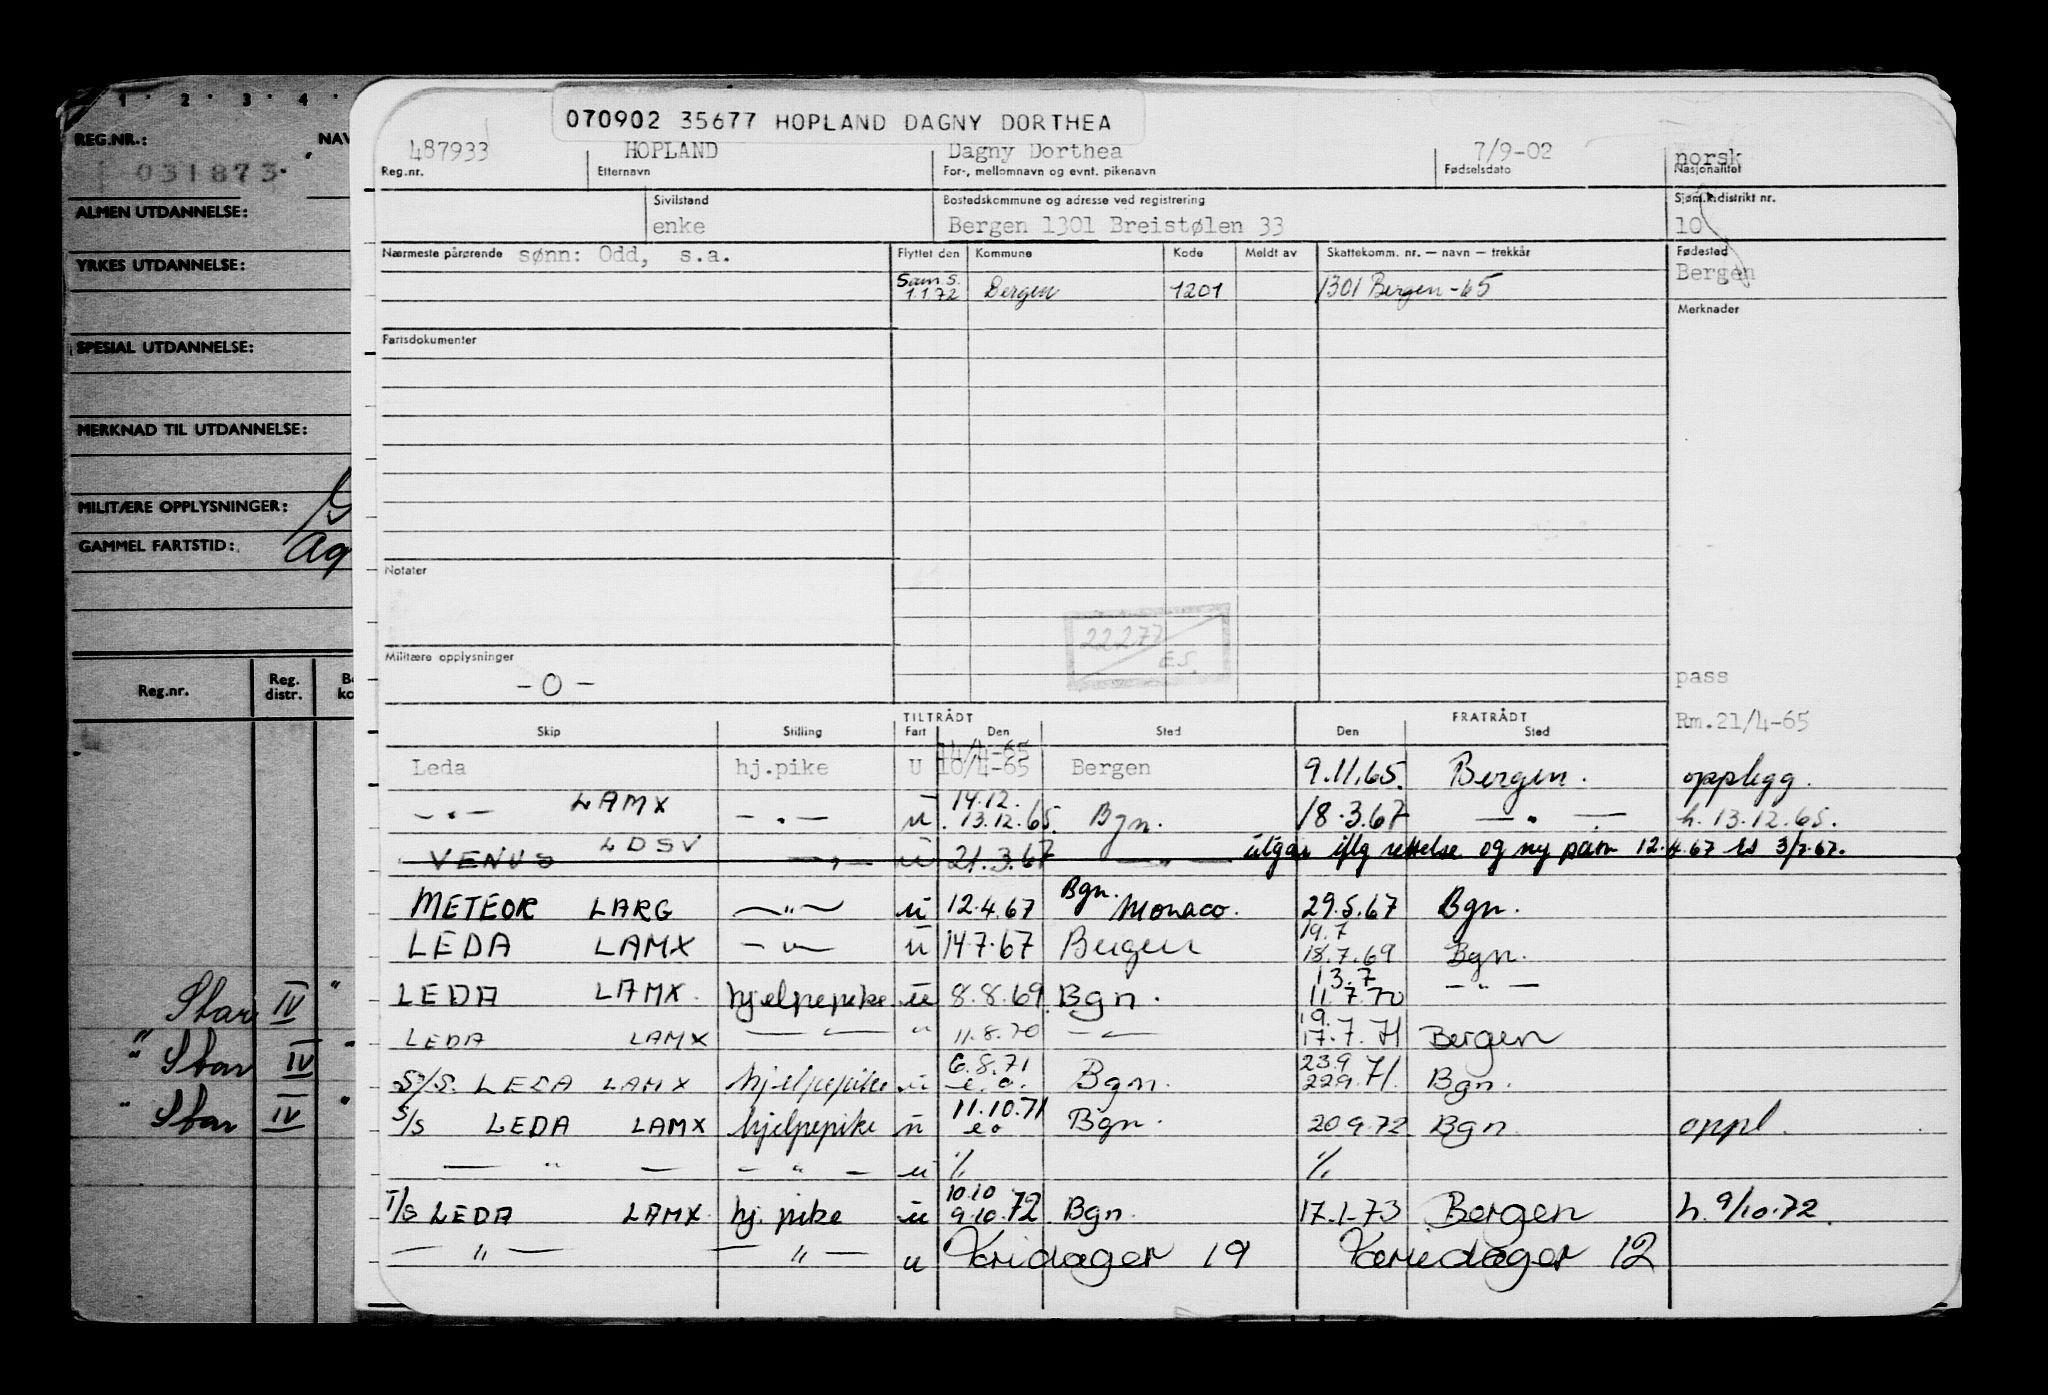 1 · 2 · 3 · 4 ·
REG.NR.: NAV
031873
ALMEN UTDANNELSE:
YRKES UTDANNELSE:
SPESIAL UTDANNELSE:
MERKNAD TIL UTDANNELSE:
MILITÆRE OPPLYSNINGER:
GAMMEL FARTSTID:
Reg.nr. Reg. distr.
Star IV "
" Star IV "
" Star IV "
070902 35677 HOPLAND DAGNY DORTHEA
487933 HOPLAND Dagny Dorthea 7/9-02 norsk
Reg.nr. Etternavn For-, mellomnavn og evnt. pikenavn Fødselsdato Nasjonalitet
Sivilstand Bostedskommune og adresse ved registrering Sjøm.k.distrikt nr.
enke Bergen 1301 Breistølen 33 10
Nærmeste pårørende sønn: Odd, s.a. Flyttet den Kommune Kode Meldt av Skattekomm. nr. — navn — trekkår Fødested
Bergen
Sam S.
1.1.72 Bergen 1201 1301 Bergen-65
Merknader
Fartsdokumenter
Notater
22277
E.S.
Militære opplysninger
-0-
pass
TILTRÅDT FRATRÅDT Rm.21/4-65
Skip Stilling Fart Den Sted Den Sted
14/4-65
Leda hj.pike U 10/4-65 Bergen 9.11.65. Bergen. opplegg.
— " — LAMX — " — u 14.12. 13.12.65. Bgn. 18.3.67 — " — h. 13.12.65.
VENUS LDSV — " — u 21.3.67 — " — utgår iflg rettelse og ny pam 12.4.67 es 3/7.67.
METEOR LARG — " — u 12.4.67 Bgn. Monaco. 29.5.67 Bgn.
LEDA LAMX — " — u 14.7.67 Bergen 19.7 18.7.69 Bgn.
LEDA LAMX. hjelpepike u 8.8.69 Bgn. 13.7 11.7.70 — " —
LEDA LAMX — " — " 11.8.70 — " — 19. 17.7.71 Bergen
S/S. LEDA LAMX hjelpepike u 6.8.71 e.o. Bgn. 23.9 22.9.71. Bgn.
S/S LEDA LAMX hjelpepike u 11.10.71 e.o Bgn. 20.9.72 Bgn. oppl.
— " — — " — u % %
T/S LEDA LAMX. hj. pike u 10.10 9.10.72 Bgn. 17.1.73 Bergen h. 9/10.72.
— " — — " — u Varidager 19 Varidager 12